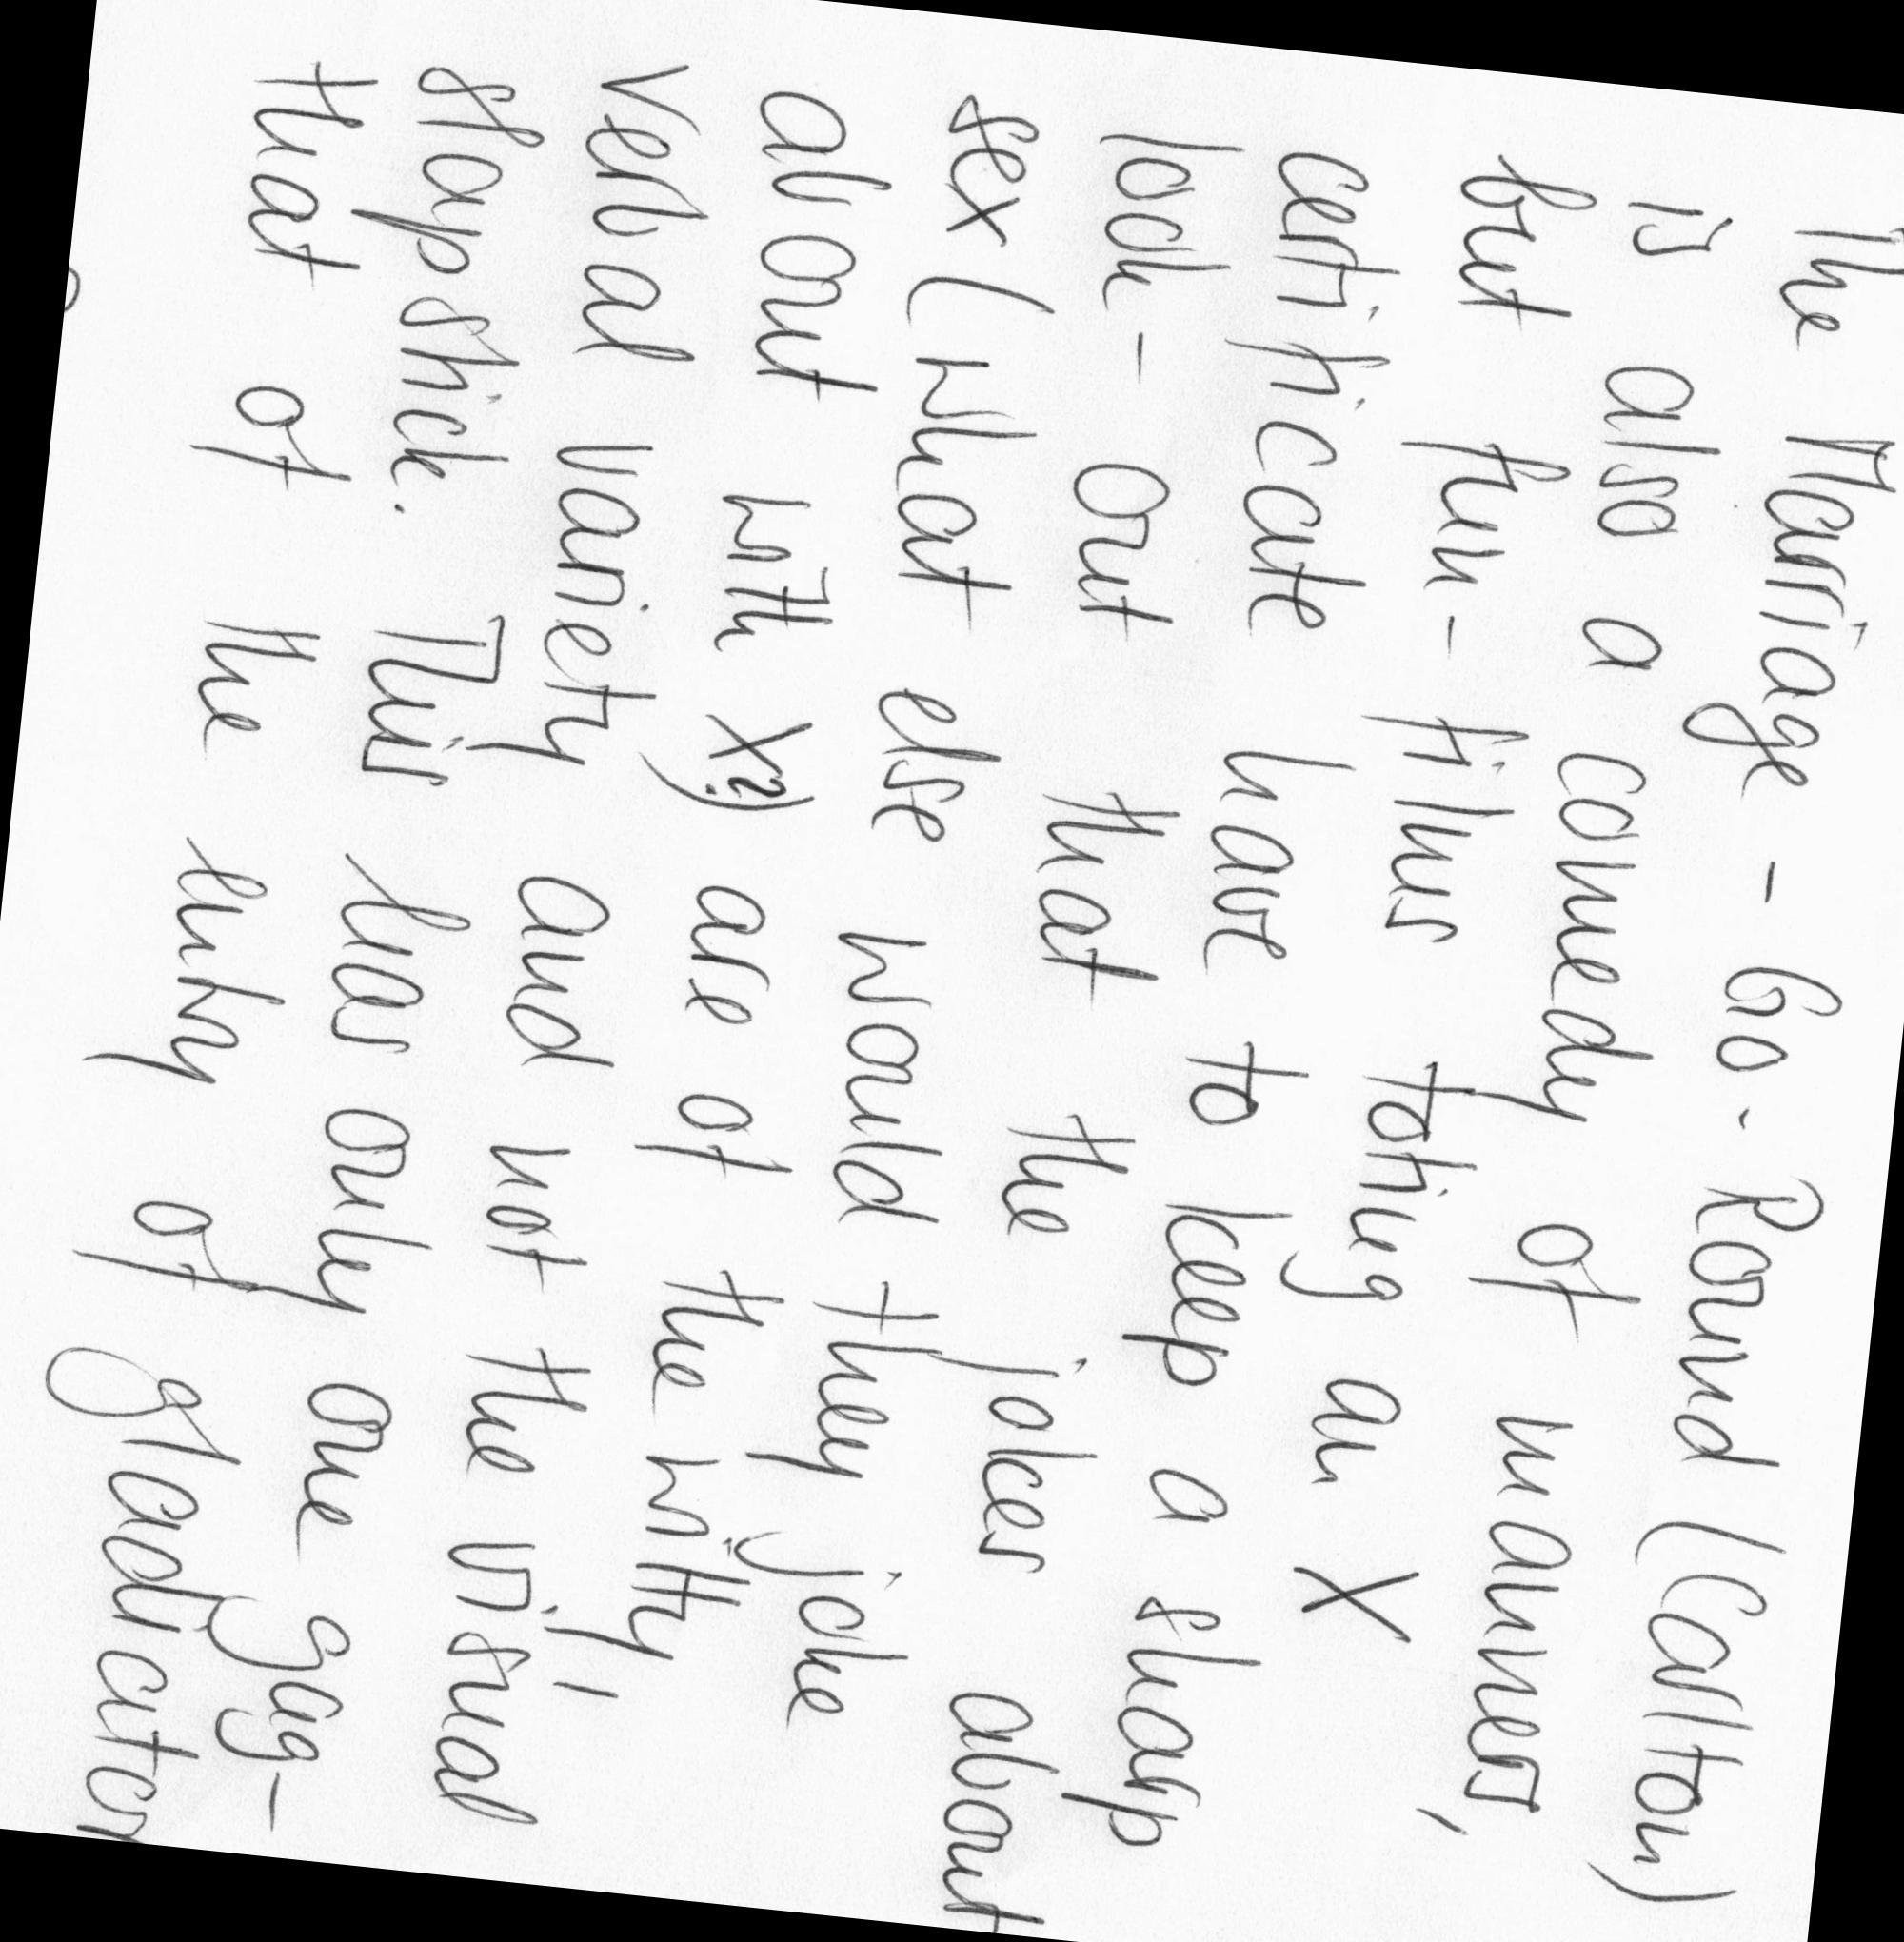 The Marriage - Go - Round (Carlton)
is also a comedy of manners,
but fun - films toting an X
certificate have to keep a sharp
look - out that the jokes about
sex (what else would they joke
about with X?) are of the witty,
verbal variety and not the visual
slapstick. This has only one gag -
that of the entry of gladiator